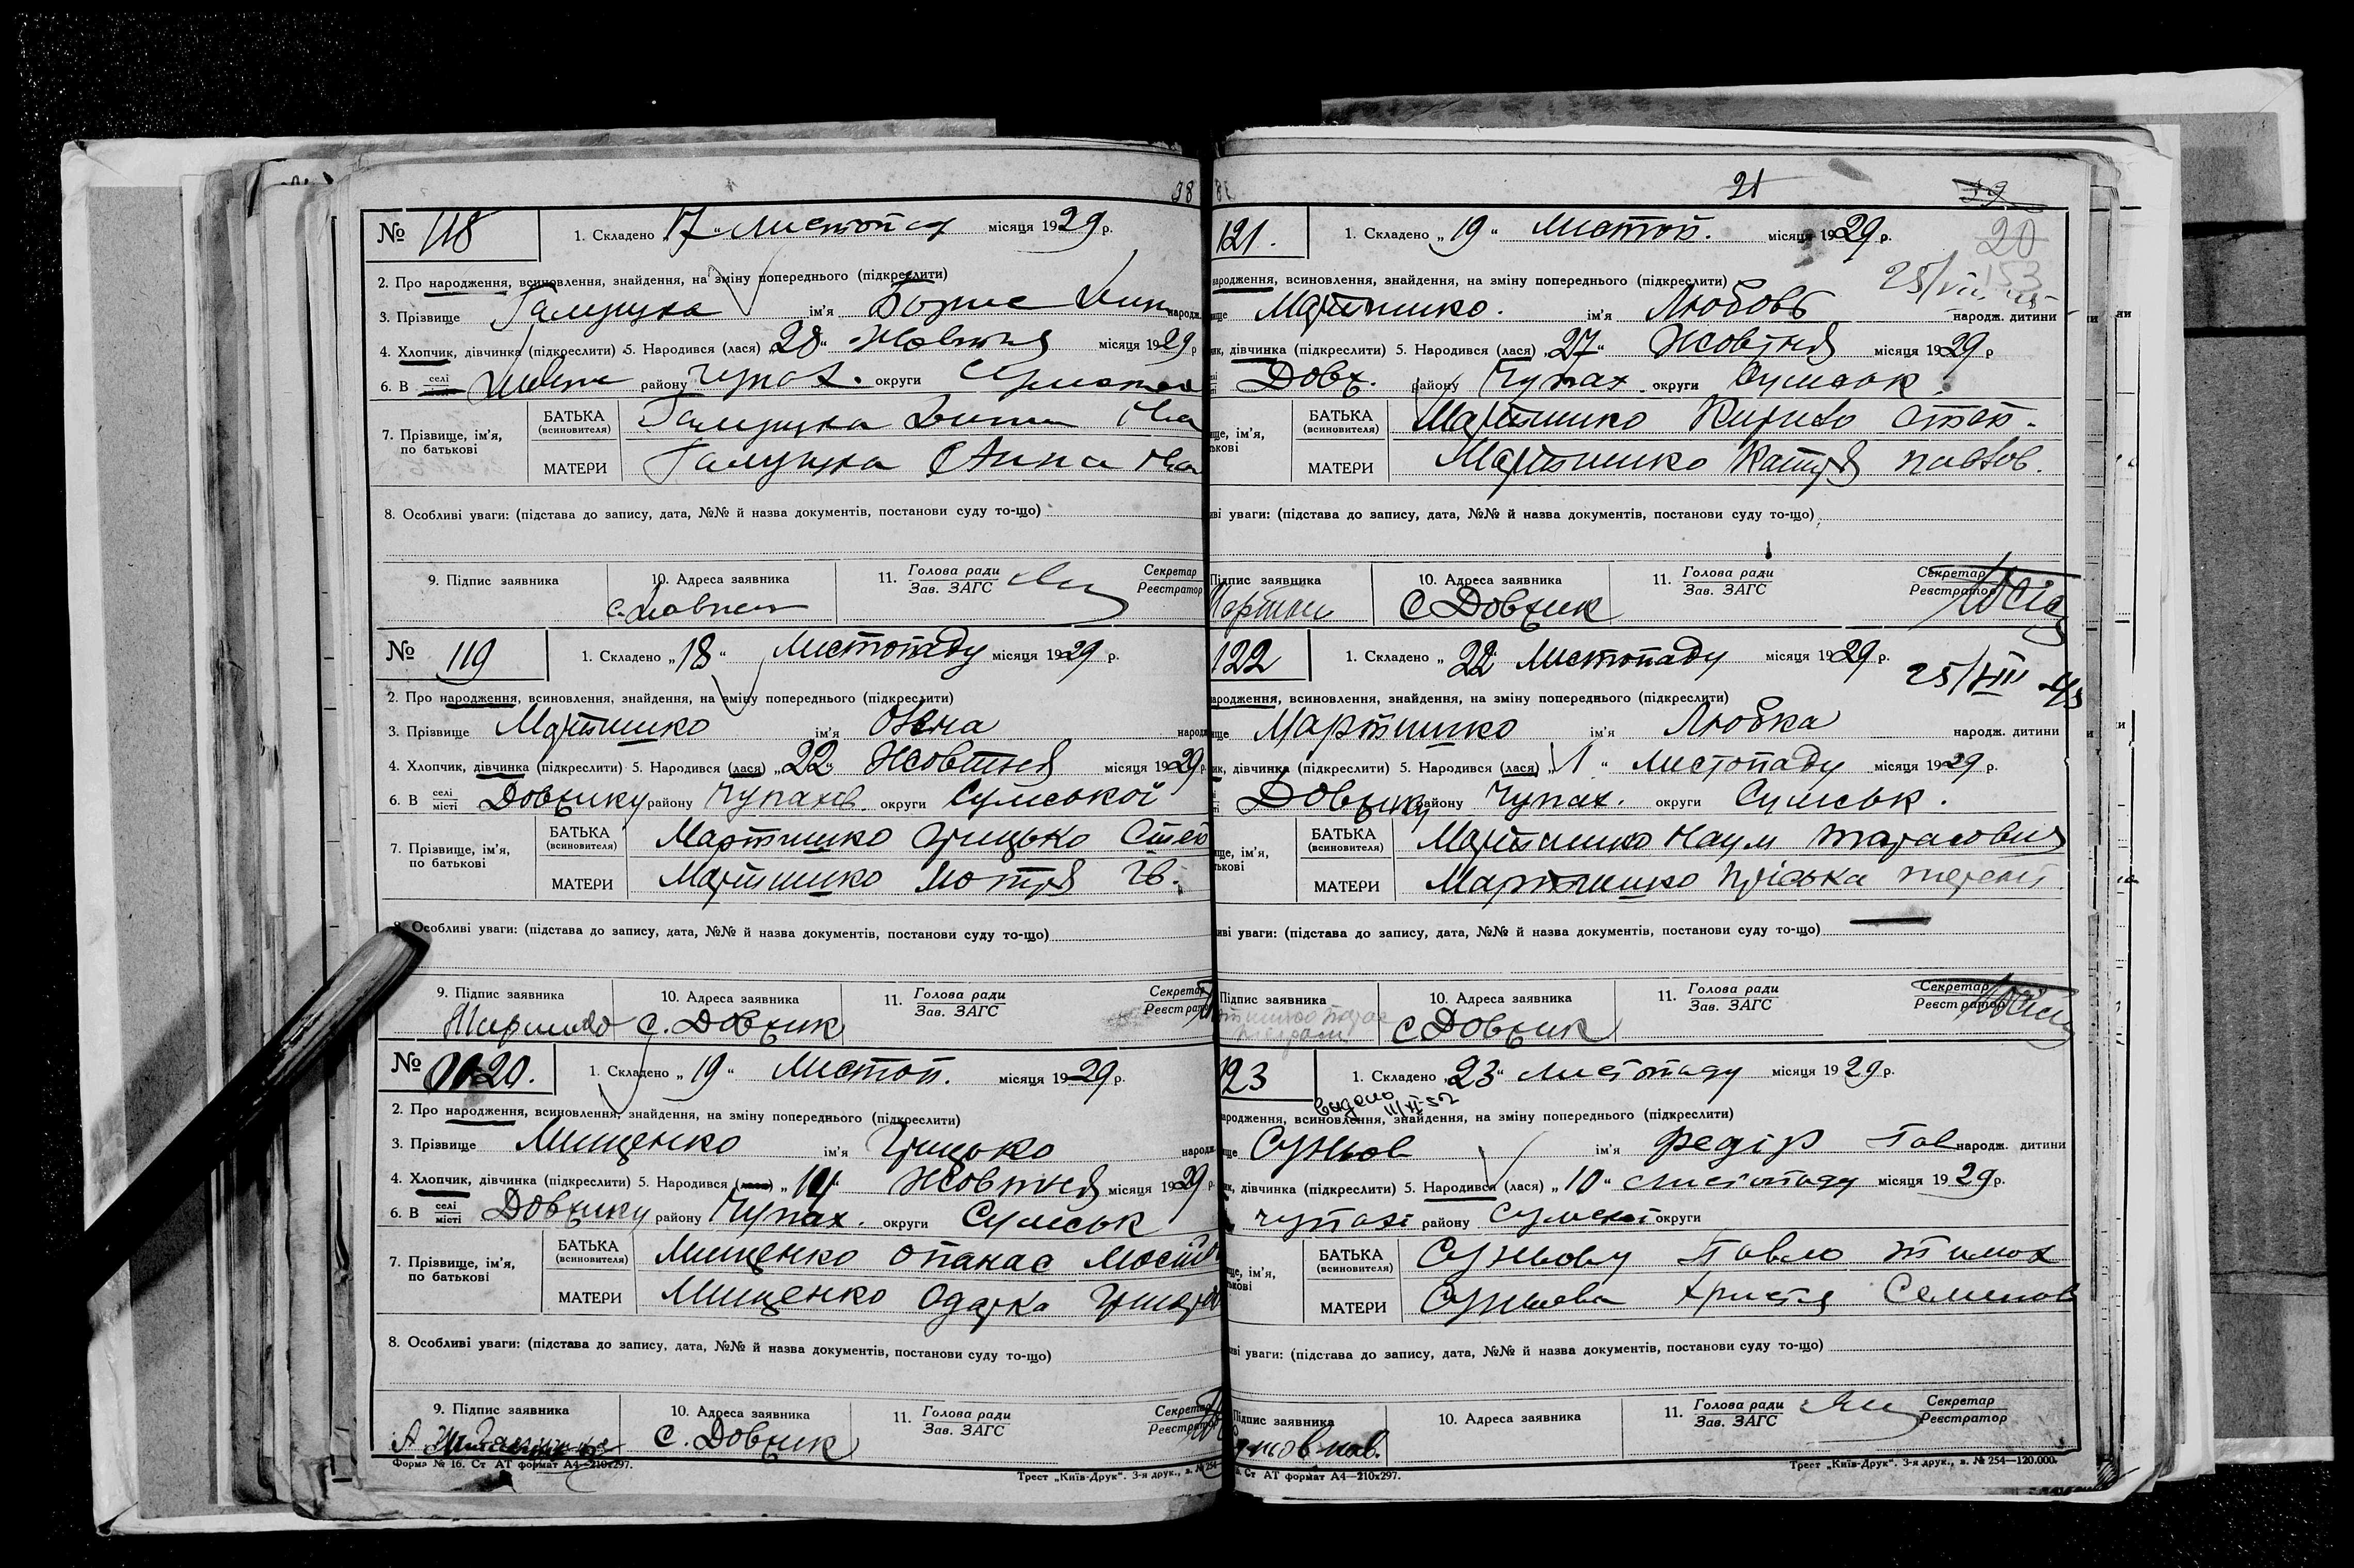 38
№ 118
1. Складено „17“ Листопад місяця 1929 р.
2. Про народження, всиновлення, знайдення, на зміну попереднього (підкреслити)
3. Прізвище Галушка ім'я Борис народж.
4. Хлопчик, дівчинка (підкреслити) 5. Народився (лася) „28“ Жовтня місяця 1929 р
6. В селі місті району Чупах. округи
7. Прізвище, ім'я, по батькові
БАТЬКА (всиновителя) Галушка
МАТЕРИ Галушка Анна Іва
8. Особливі уваги: (підстава до запису, дата, №№ й назва документів, постанови суду то-що)
9. Підпис заявника 10. Адреса заявника 11. Голова ради Зав. ЗАГС Секретар Реєстратор
№ 119
1. Складено „18“ Листопаду місяця 1929 р.
2. Про народження, всиновлення, знайдення, на зміну попереднього (підкреслити)
3. Прізвище Мартишко ім'я народж
4. Хлопчик, дівчинка (підкреслити) 5. Народився (лася) „22“ Жовтня місяця 1929 р.
6. В селі місті Довжику району Чупахів. округи Сумської
7. Прізвище, ім'я, по батькові
БАТЬКА (всиновителя) Мартишко Грицько Степ
МАТЕРИ Мартишко Мотря Ів.
8. Особливі уваги: (підстава до запису, дата, №№ й назва документів, постанови суду то-що)
9. Підпис заявника 10. Адреса заявника 11. Голова ради Зав. ЗАГС Секретар Реєстратор
С. Довжик
№ 120.
1. Складено „19“ Листоп. місяця 1929 р.
2. Про народження, всиновлення, знайдення, на зміну попереднього (підкреслити)
3. Прізвище Мищенко ім'я Грицько народж.
4. Хлопчик, дівчинка (підкреслити) 5. Народився (лася) „14“ Жовтня місяця 1929 р.
6. В селі місті Довжику району Чупах. округи Сумськ
7. Прізвище, ім'я, по батькові
БАТЬКА (всиновителя) Мищенко Опанас
МАТЕРИ Мищенко Одарка
8. Особливі уваги: (підстава до запису, дата, №№ й назва документів, постанови суду то-що)
9. Підпис заявника 10. Адреса заявника 11. Голова ради Зав. ЗАГС Секретар Реєстратор
С. Довжик
Форма № 16. Ст АТ формат А4—210x297.
Трест „Київ-Друк“. 3-я друк., з. № 254
21
39
20
153
121.
1. Складено „19“ Листоп. місяця 1929 р.
народження, всиновлення, знайдення, на зміну попереднього (підкреслити)
Мартишко. ім'я Любовь народж. дитини
дівчинка (підкреслити) 5. Народився (лася) „27“ Жовтня місяця 1929 р
Довж. району Чупах. округи Сумськ.
БАТЬКА (всиновителя) Мартишко Кирило Степ.
МАТЕРИ Мартишко Катря Павлов.
уваги: (підстава до запису, дата, №№ й назва документів, постанови суду то-що)
Підпис заявника 10. Адреса заявника 11. Голова ради Зав. ЗАГС Секретар Реєстратор
С Довжик
122
1. Складено „22 Листопаду місяця 1929 р.
25/VIII
народження, всиновлення, знайдення, на зміну попереднього (підкреслити)
Мартишко ім'я Любка народж. дитини
дівчинка (підкреслити) 5. Народився (лася) „1“ Листопаду місяця 1929 р.
Довжику району Чупах. округи Сумськ.
БАТЬКА (всиновителя) Мартишко Наум Тарасович
МАТЕРИ Мартишко Пріська
уваги: (підстава до запису, дата, №№ й назва документів, постанови суду то-що)
Підпис заявника 10. Адреса заявника 11. Голова ради Зав. ЗАГС Секретар Реєстратор
С Довжик
123
1. Складено „23“ Листопаду місяця 1929 р.
народження, всиновлення, знайдення, на зміну попереднього (підкреслити)
ім'я Федір Пав народж. дитини
дівчинка (підкреслити) 5. Народився (лася) „10“ Листопаду місяця 1929 р.
Чупахі району округи
БАТЬКА (всиновителя) Павло Тимох
МАТЕРИ Христя Семенов
уваги: (підстава до запису, дата, №№ й назва документів, постанови суду то-що)
Підпис заявника 10. Адреса заявника 11. Голова ради Зав. ЗАГС Секретар Реєстратор
Ст АТ формат А4—210x297.
Трест „Київ-Друк“. 3-я друк., з. № 254—120.000.